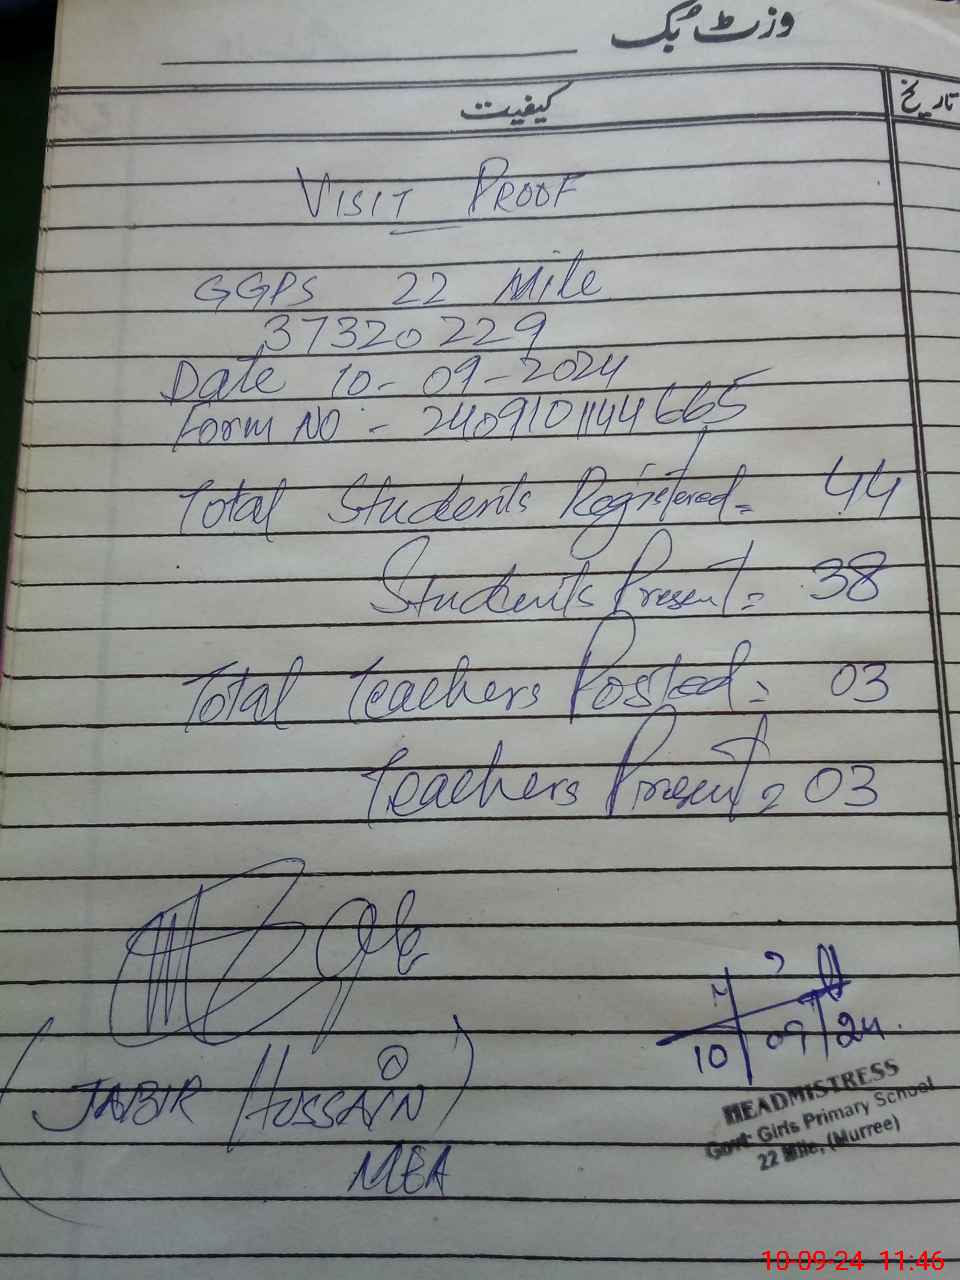 وزٹ بُک
کیفیت
تاریخ
VISIT PROOF
GGPS 22 Mile
37320229
Date 10-09-2024
Form NO:- 2409101144665
Total Students Registered= 44
Students Present= 38
Total Teachers Posted= 03
Teachers Present= 03
(JABIR HUSSAIN)
MEA
10/09/24.
HEADMISTRESS
Govt: Girls Primary School
22 Mile, (Murree)
10-09-24 11:46